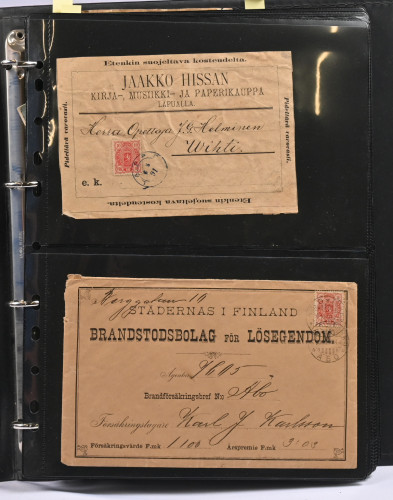 Etenkin suojeltava kosteudelta.
JAAKKO HISSAN
KIRJA-, MUSIIKKI- JA PAPERIKAUPPA
LAPUALLA.
Herra Opettaja J. G. Helminen
Wihti
e. k.
Pideltävä varovasti.
Pideltävä varovasti.
Etenkin suojeltava kosteudelta.
Berggatan 10
STÄDERNAS I FINLAND
BRANDSTODSBOLAG FÖR LÖSEGENDOM.
Agentur Åbo
Brandförsäkringsbref N:o 9605
Försäkringstagare Karl J Karlsson
Försäkringsvärde F.mk 1100 Årspremie F.mk 3:03